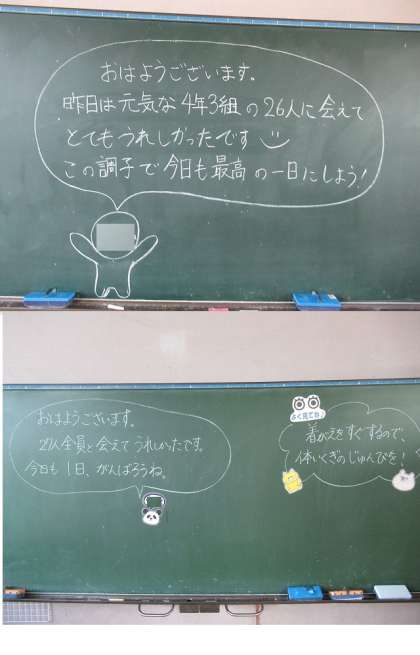 おはようございます。
昨日は元気な4年3組の26人に会えて
とてもうれしかったです
この調子で今日も最高の一日にしよう!
おはようございます。
21人全員と会えてうれしかったです。
今日も1日、がんばろうね。
よく見てね
着がえをすぐするので、
体いくぎのじゅんびを!